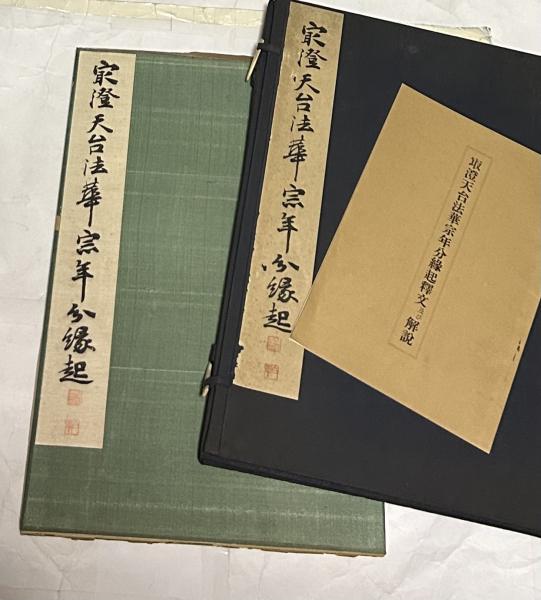 最澄天台法華宗年分緣起
最澄天台法華宗年分緣起
最澄天台法華宗年分緣起釋文及び解說